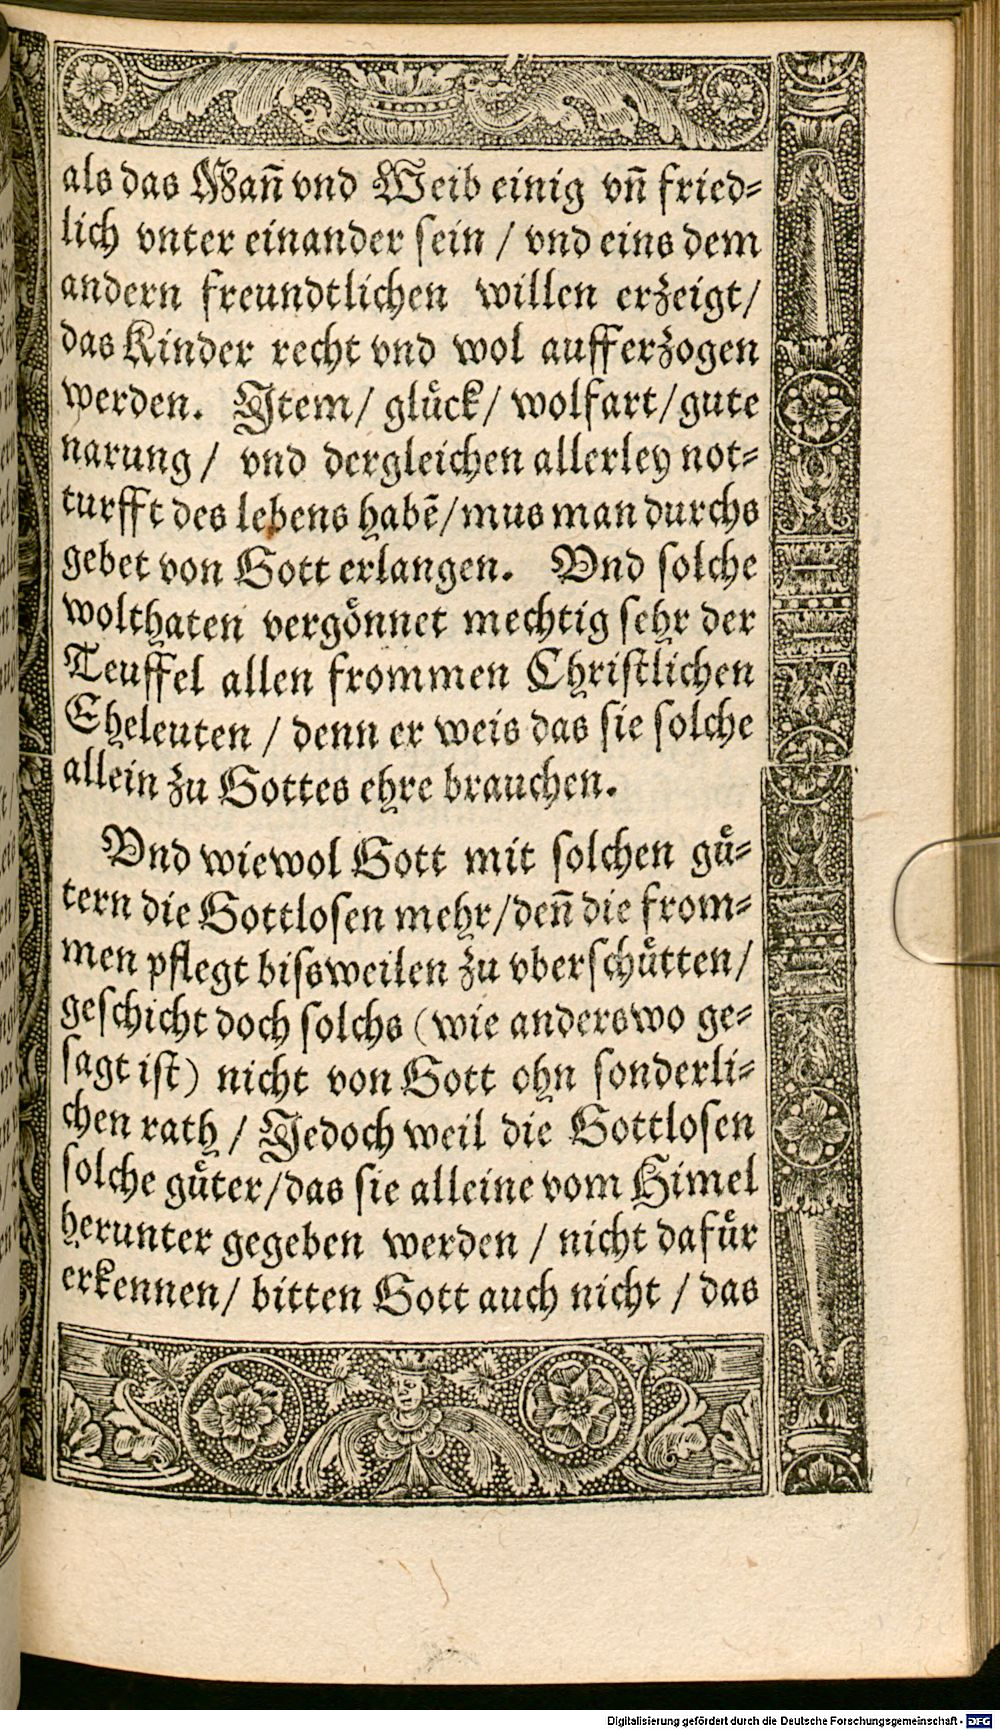 als das Mañ vnd Weib einig vñ fried⸗
lich vnter einander sein / vnd eins dem
andern freundtlichen willen erzeigt/
das Kinder recht vnd wol aufferzogen
werden. Item/ glůck/ wolfart/gute
narung / vnd dergleichen allerley not⸗
turfft des lebens habē/mus man durchs
gebet von Gott erlangen. Vnd solche
wolthaten vergőnnet mechtig sehr der
Teuffel allen frommen Christlichen
Eheleuten / denn er weis das sie solche
allein zu Gottes ehre brauchen.
Vnd wiewol Gott mit solchen gů⸗
tern die Gottlosen mehr/deñ die from⸗
men pflegt bissweilen zu vberschůtten/
geschicht doch solchs (wie anderswo ge⸗
sagt ist) nicht von Gott ohn sonderli⸗
chen rath / Jedoch weil die Gottlosen
solche gůter/das sie alleine vom Himel
herunter gegeben werden / nicht dafůr
erkennen/ bitten Gott auch nicht / das
Digitalisierung gefördert durch die Deutsche Forschungsgemeinschaft - DFG